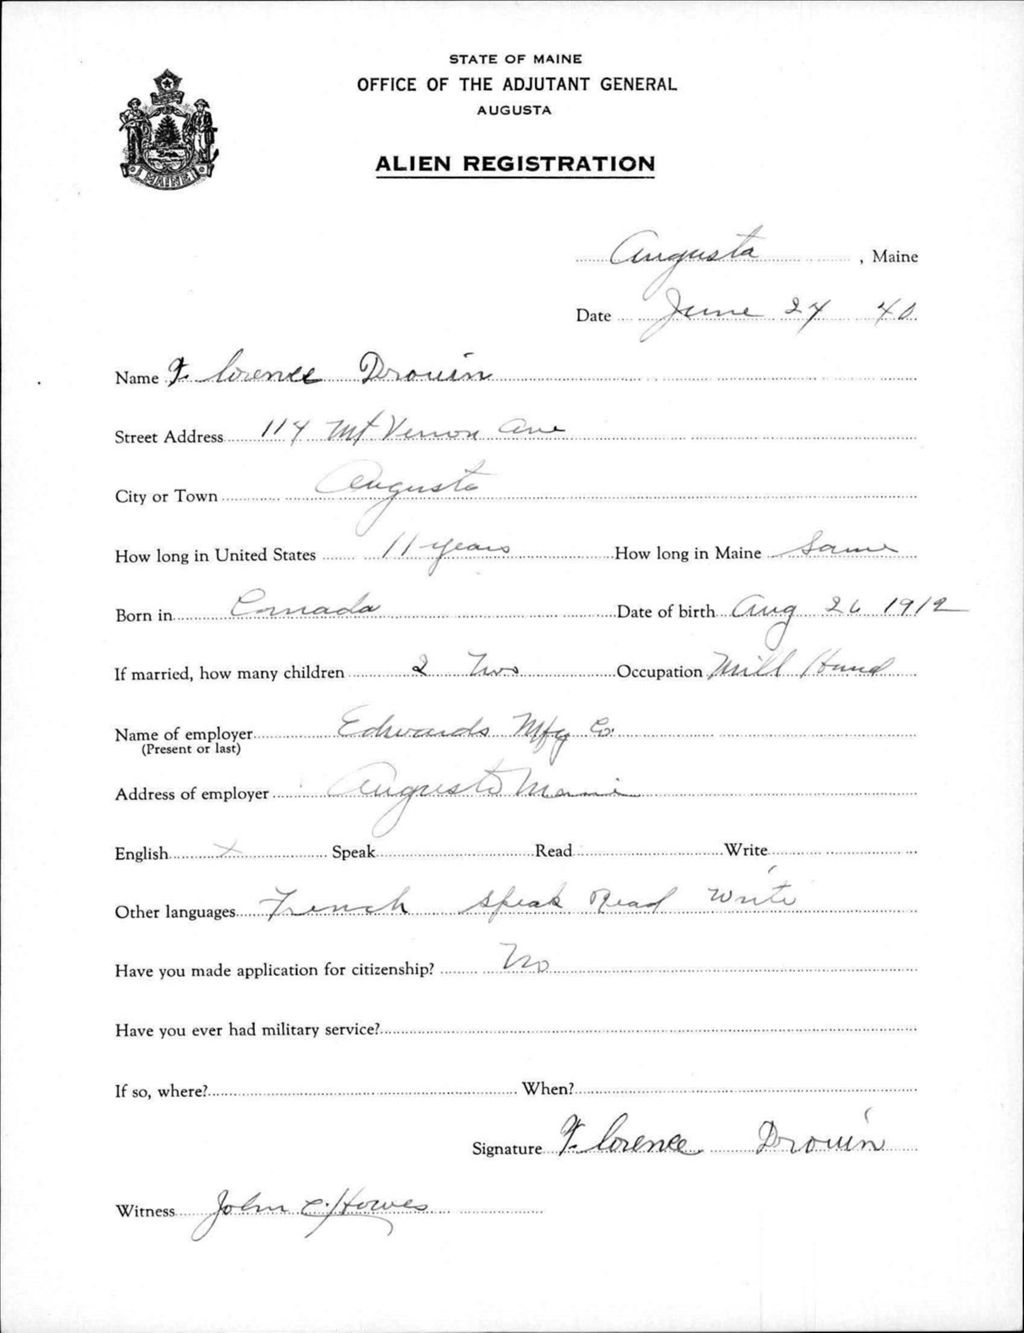 STATE OF MAINE
OFFICE OF THE ADJUTANT GENERAL
AUGUSTA
ALIEN REGISTRATION
MAINE
Augusta, Maine
Date June 24 40
Name Florence Drouin
Street Address 114 Mt Vernon Ave
City or Town Augusta
How long in United States 11 years How long in Maine Same
Born in Canada Date of birth Aug 26 1912
If married, how many children 2 Two Occupation Mill Hand
Name of employer Edwards Mfg Co.
(Present or last)
Address of employer Augusta Maine
English x Speak Read Write
Other languages French Speak Read Write
Have you made application for citizenship? No
Have you ever had military service?
If so, where? When?
Signature Florence Drouin
Witness John C. Howes